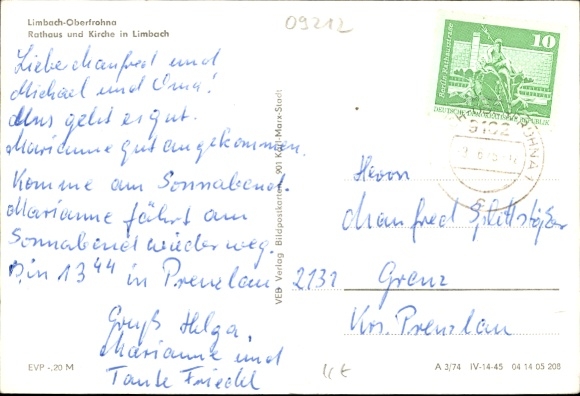 Limbach-Oberfrohna
Rathaus und Kirche in Limbach
09212
Lieber Manfred und
Michael und Oma!
Uns geht es gut.
Marianne gut angekommen.
Komme am Sonnabend.
Marianne fährt am
Sonnabend wieder weg.
Bin 13 44 in Prenzlau
Gruß Helga,
Marianne und
Tante Friedel
EVP -,20 M
VEB Verlag Bildpostkarten 901 Karl-Marx-Stadt
10
Berlin Rathausstraße
DEUTSCHE DEMOKRATISCHE REPUBLIK
Herrn
Manfred
2131 Grenz
Krs. Prenzlau
A 3/74 IV-14-45 04 14 05 208